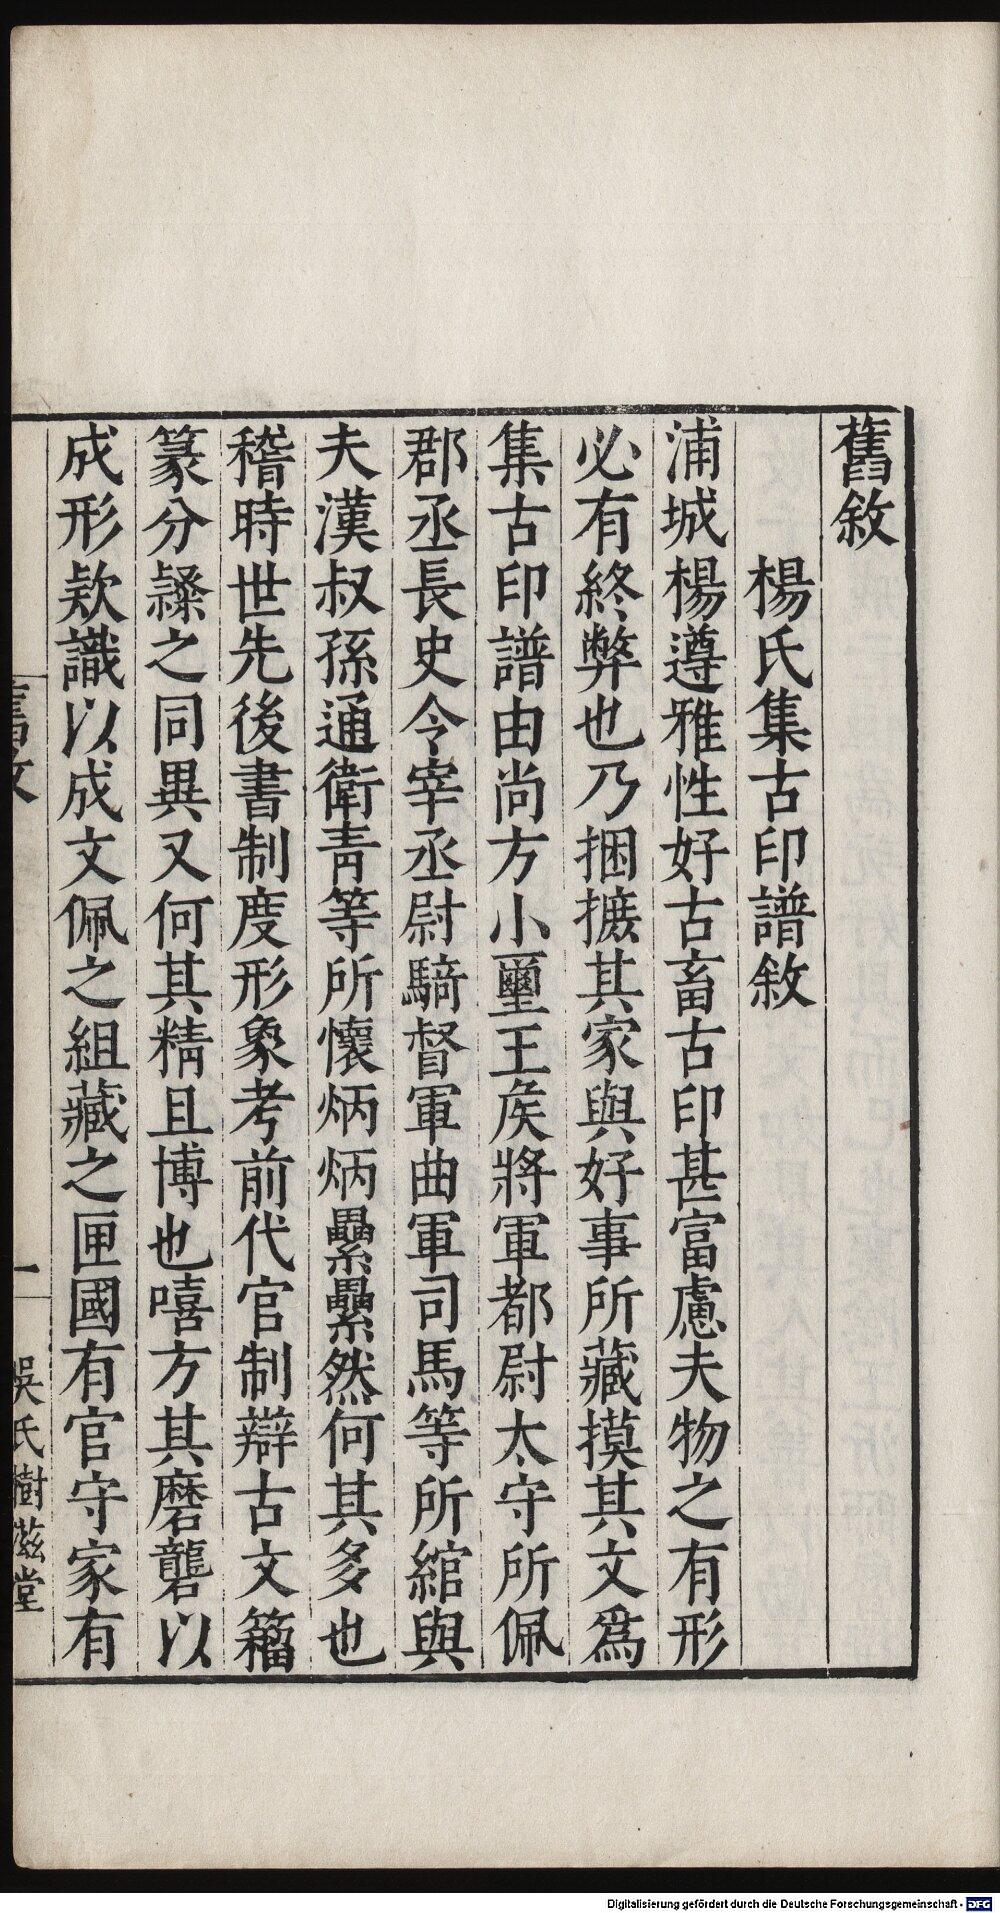 舊敘
楊氏集古印譜敘
浦城楊遵雅性好古畜古印甚富慮夫物之有形
必有終弊也乃捆摭其家與好事所藏摸其文爲
集古印譜由尚方小璽王矦將軍都尉太守所佩
郡丞長史令宰丞尉騎督軍曲軍司馬等所綰與
夫漢叔孫通衛青等所懷炳炳纍纍然何其多也
稽時世先後書制度形象考前代官制辯古文籀
篆分隸之同異又何其精且博也嘻方其磨礱以
成形欵識以成文佩之組藏之匣國有官守家有
舊敘 一 吳氏樹滋堂
Digitalisierung gefördert durch die Deutsche Forschungsgemeinschaft - DFG